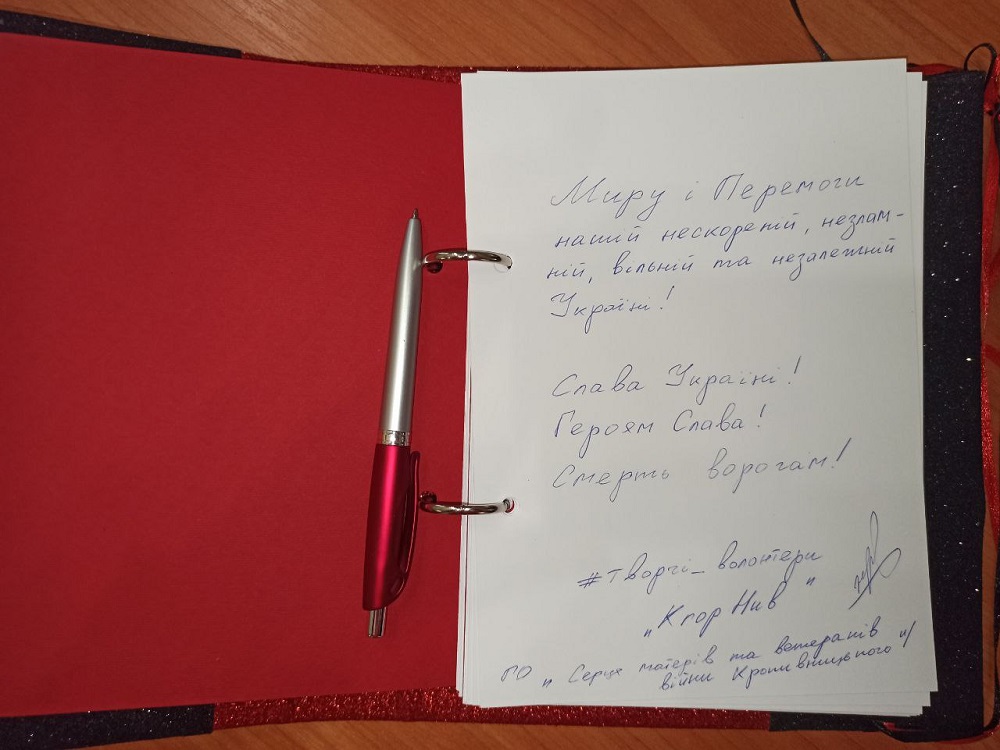 Миру і Перемоги
нашій нескореній, незлам-
ній, вільній та незалежній
Україні!
Слава Україні!
Героям Слава!
Смерть ворогам!
#творчі_волонтери
„КгорНив"
ГО „Серце матерів та ветеранів
війни Кропивницького"